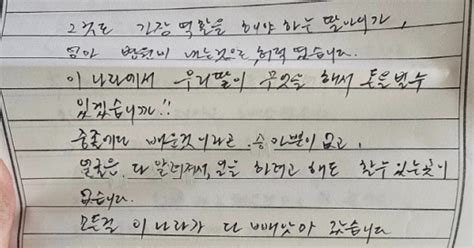 그것도 가장 역활을 해야 하는 딸아이가,
엄마 병원비 내는것으로, 허덕 였습니다.
이 나라에서 우리딸이 무엇을 해서 돈을벌수
있겠습니까!!
배운것이라고 승마뿐이 없고,
얼굴은 다 알려져서, 일을 하려고 해도 할수있는곳이
없습니다.
모든걸 이 나라가 다 빼앗아 갔습니다